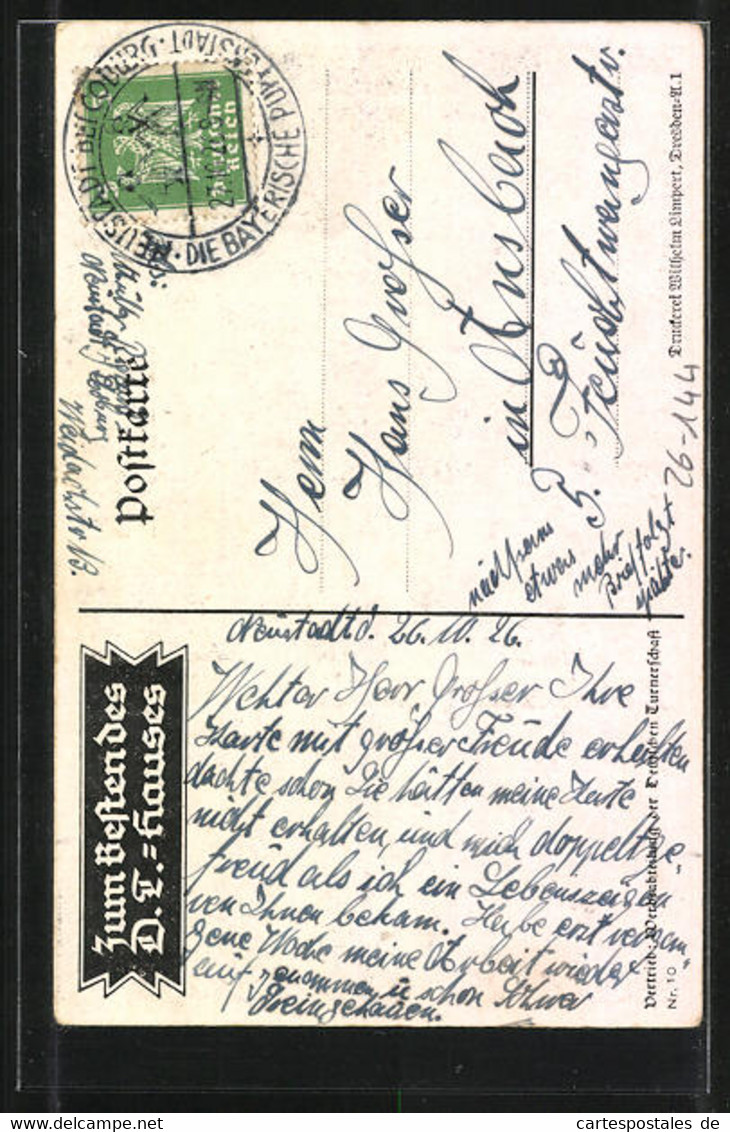 Zum Besten des
D. T.=Hauses
Neustadt d. 26.10.26.
Wehter Herr Großer Ihre
Karte mit großer Freude erhalten
dachte schon Sie hätten meine Karte
nicht erhalten, und mich doppelt ge
freud als ich ein Lebenszeigen
von Ihnen bekam. Habe erst vergan
gene Woche meine Arbeit wieder
auf genommen, u schon schwer
Dreingehauen.
Vertrieb: Werbeabteilung der Deutschen Turnerschaft
Nr. 10
Postkarte
Neustadt b/ Coburg
Weidachstr 13.
NEUSTADT BEI COBURG · DIE BAYERISCHE PUPPENSTADT ·
Deutsches Reich
Herrn
Hans Großer
in Ansbach
B. Feuchtwangerstr.
nächstens
etwas
mehr
Brief folgt
später.
26-144
Druckerei Wilhelm Limpert, Dresden-A. 1
cartespostales de